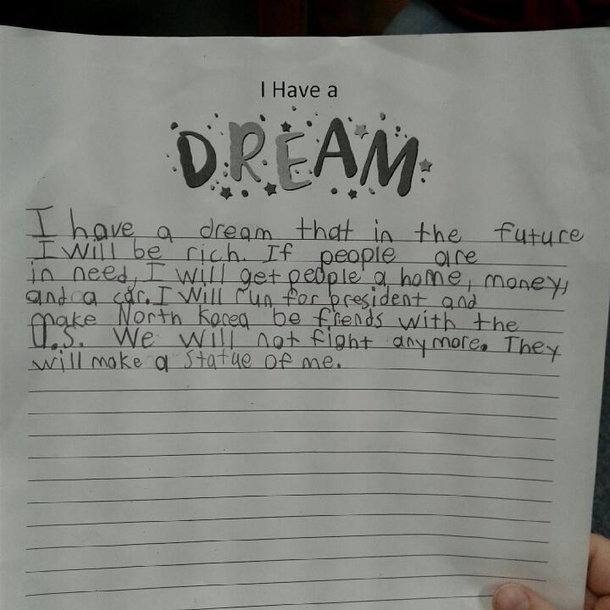 I Have a
DREAM
I have a dream that in the future
I will be rich. If people are
in need, I will get people a home, money,
and a car. I will run for president and
make North Korea be fiends with the
U.S. We will not fight anymore. They
will make a statue of me.